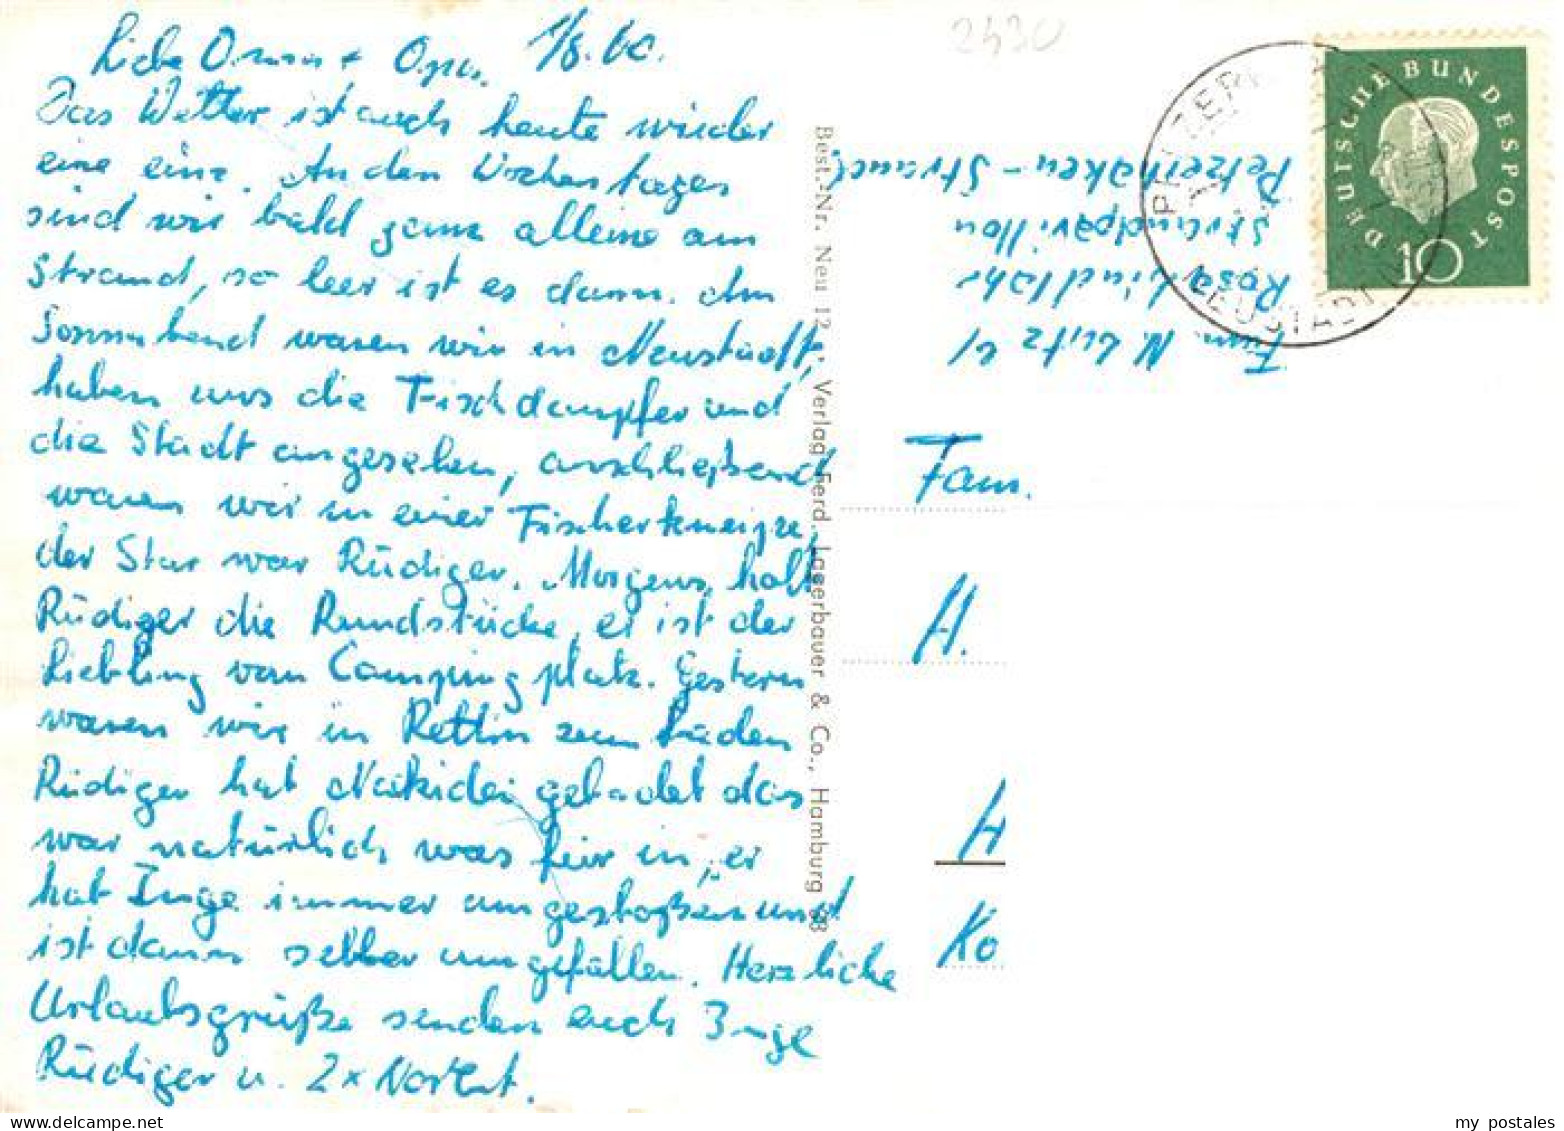 Liebe Oma + Opa. 1/8. 60.
Das Wetter ist auch heute wieder
eine eins. An den Wochentagen
sind wir bald ganz alleine am
Strand, so leer ist es dann. Am
Sonnabend waren wir in Neustadt,
haben uns die Fischdampfer und
die Stadt angesehen, anschließend
waren wir in einer Fischerkneipe,
der Star war Rüdiger. Morgens holt
Rüdiger die Rundstücke, er ist der
Liebling vom Campingplatz. Gestern
waren wir in Rettin zum baden
Rüdiger hat gebadet das
war natürlich was für ihn, er
hat Inge immer umgestoßen und
ist dann selber umgefallen. Herzliche
Urlaubsgrüße senden euch Inge
Rüdiger u. 2x Norbert.
Best.-Nr. Neu 12 Verlag Ferd. Lagerbauer & Co., Hamburg 33
2430
Fam. N. Lutz
Rosa Lindlahr
Strandpavillon
Pelzerhaken-Strand
DEUTSCHE BUNDESPOST
10
PELZERHAKEN
NEUSTADT
Fam.
H.
H
Ko
my postales